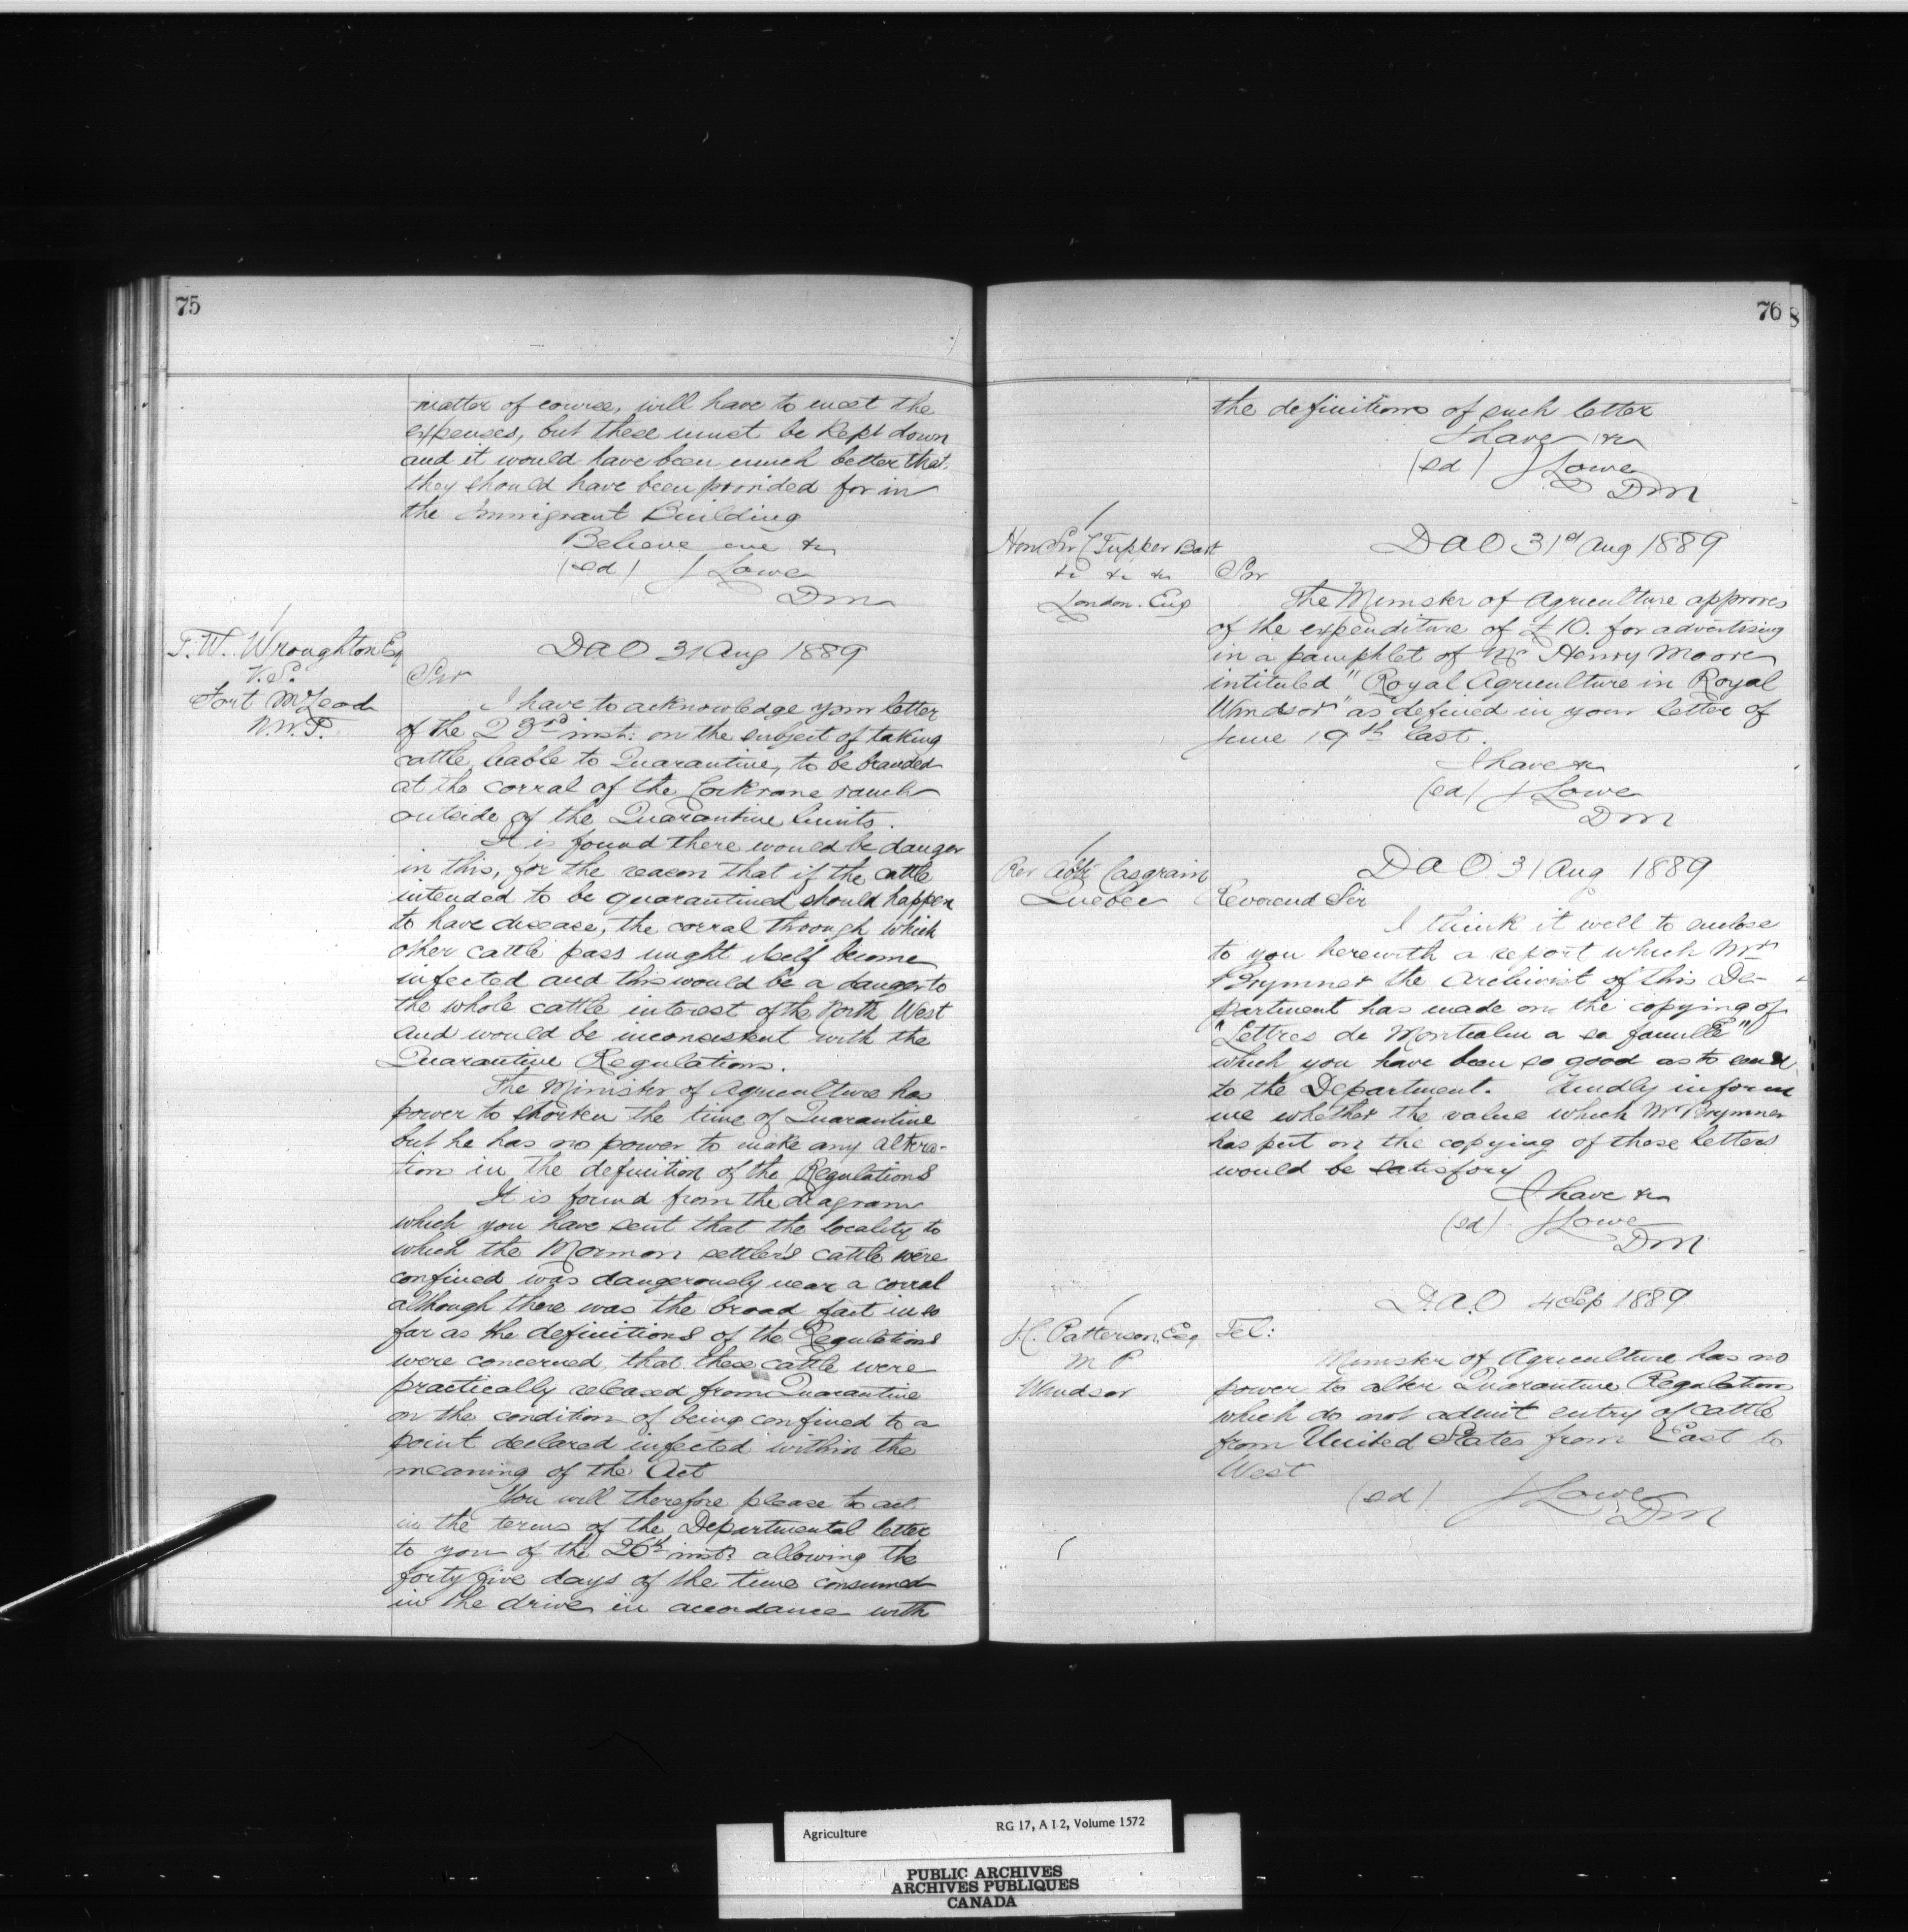 75
matter of course, will have to meet the
expenses, but these must be kept down
and it would have been much better that
they should have been provided for in
the Immigrant Building
Believe me &c
(sd) J Lowe
D m
T. W. Wroughton Esq
V. S.
Fort McLeod
N. W. T.
D a O 31 Aug 1889
Sir
I have to acknowledge your letter
of the 23rd inst: on the subject of taking
cattle, leable to Quarantine, to be branded
at the corral of the Cockrane ranch
outside of the Quarantine limits.
It is found there would be danger
in this, for the reason that if the cattle
intended to be quarantined should happen
to have disease, the corral through which
other cattle pass might itself become
infected and this would be a danger to
the whole cattle interest of the North West
and would be inconsistent with the
Quarantine Regulations.
The Minister of Agriculture has
power to shorten the time of Quarantine
but he has no power to make any altera-
tion in the definition of the Regulations
It is found from the diagram
which you have sent that the locality to
which the Mormon settler's cattle were
confined was dangerously near a corral
although there was the broad fact in so
far as the definitions of the Regulations
were concerned, that these cattle were
practically released from Quarantine
on the condition of being confined to a
point declared infected within the
meaning of the Act
You will therefore please to act
in the terms of the Departmental letter
to you of the 26th inst: allowing the
forty five days of the time consumed
in the drive in accordance with
76
8
the definitions of such letter
I have &c
(sd) J Lowe
D m
Hon Sir C Tupper Bart
&c &c &c
London. Eng
D a O 31st Aug 1889
Sir
The Minister of Agriculture approves
of the expenditure of £10. for advertising
in a pamphlet of Mr Henry Moore
intituled "Royal Agriculture in Royal
Windsor" as defined in your letter of
June 19th last.
I have &c
(sd) J Lowe
D m
Rev Abbé Casgrain
Quebec
D a O 31 Aug 1889
Reverend Sir
I think it well to enclose
to you herewith a report which Mr
Brymner the Archivist of this De-
partment has made on the copying of
"Lettres de Montcalm a sa famille"
which you have been so good as to send
to the Department. Kindly inform
me whether the value which Mr Brymner
has put on the copying of those letters
would be satisfory
I have &c
(sd) J Lowe
D m
Patterson, Esq
M P
Windsor
D. a. O 4 Sep 1889
Tel:
Minister of Agriculture has no
power to alter Quarantine Regulations
which do not admit entry of cattle
from United States from East to
West
(sd) J Lowe
D m
Agriculture RG 17, A I 2, Volume 1572
PUBLIC ARCHIVES
ARCHIVES PUBLIQUES
CANADA